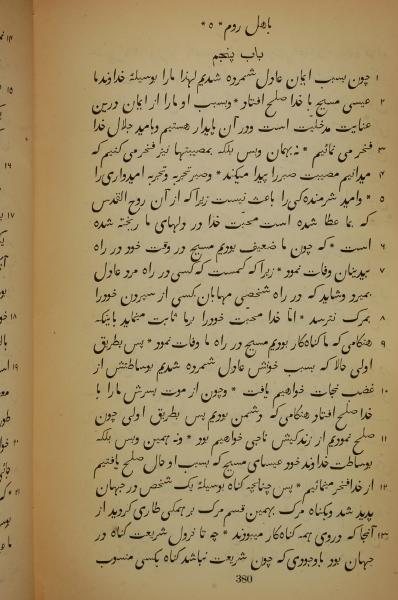 باهل روم * ٥ *
باب پنجم
١ چون بسبب ایمان عادل شمرده شدیم لهذا ما را بوسیلهٔ خداوند ما
٢ عیسی مسیح با خدا صلح افتاد * وبسبب او ما را از ایمان درین
عنایت مدخلیت است ودر آن پایدار هستیم وبامید جلال خدا
٣ فخر می نمائیم * نه بهمان وبس بلکه بمصیبتها نیز فخر می کنیم که
٤ میدانیم مصیبت صبر را پیدا میکند * وصبر تجربه وتجربه امیدواری را
٥ * وامید شرمنده کی را باعث نیست زیرا که از آن روح القدس
که بما عطا شده است محبّت خدا در دلهای ما ریخته شده
٦ است * که چون ما ضعیف بودیم مسیح در وقت خود در راه
٧ بیدینان وفات نمود * زیرا که کمست که کسی در راه مرد عادل
بمیرد وشاید که در راه شخصی مهربان کسی از سپردن خود را
٨ بمرک نترسد * امّا خدا محبّت خود را بما ثابت مینماید باینکه
٩ هنگامی که ما کناه کار بودیم مسیح در راه ما وفات نمود * پس بطریق
اولی حالا که بسبب خونش عادل شمرده شدیم بوساطتش از
١٠ غضب نجات خواهیم یافت * وچون از موت پسرش ما را با
خدا صلح افتاد هنکامی که دشمن بودیم پس بطریق اولی چون
١١ صلح نمودیم از زندکیش ناجی خواهیم بود * ونه همین وبس بلکه
بوساطت خداوند خود عیسای مسیح که بسبب او حال صلح یافتیم
١٢ از خدا فخر مینمائیم * پس چنانچه کناه بوسیلهٔ یک شخص در جهان
پدید شد وبکناه مرک بهمین قسم مرک بر همکی طاری کردید از
١٣ آنجا که در وی همه کناه کار میبودند * چه تا نزول شریعت کناه در
جهان بود باوجودی که چون شریعت نباشد کناه بکسی منسوب
380